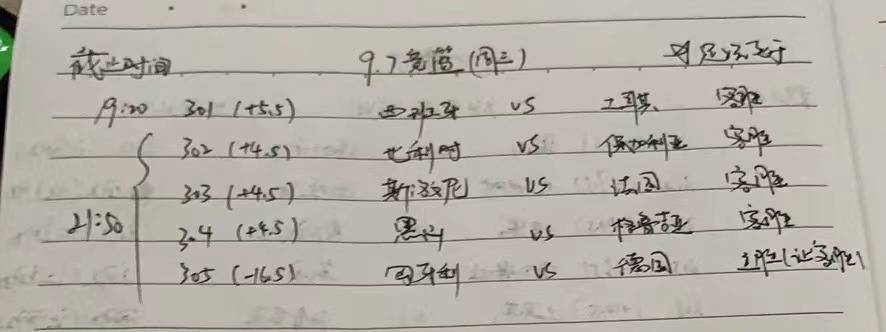 Date
截止时间 9.7竞篮(周三)
19:20 301 (+5.5) 西班牙 VS 土耳其 客胜
302 (+4.5) 比利时 VS 保加利亚 客胜
303 (+4.5) 斯洛尼 VS 法国 客胜
21:50 304 (+4.5) 黑山 VS 格鲁吉亚 客胜
305 (-16.5) 匈牙利 VS 德国 主胜(让客胜)